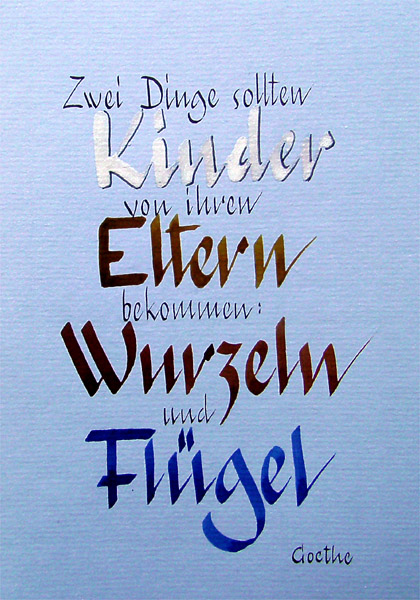 Zwei Dinge sollten
Kinder
von ihren
Eltern
bekommen:
Wurzeln
und
Flügel
Goethe